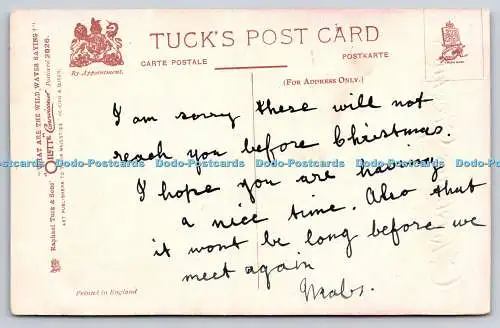 TUCK'S POST CARD
CARTE POSTALE
POSTKARTE
(FOR ADDRESS ONLY.)
By Appointment.
"WHAT ARE THE WILD WAVES SAYING?"
"OILETTE" "Connoisseur" Postcard 2926.
Raphael Tuck & Sons'
ART PUBLISHERS TO THEIR MAJESTIES
I am sorry these will not
reach you before Christmas.
Dodo-Postcards Dodo-Postcards Dodo-Postcards Dodo-Postcards Dodo-Postcards
I hope you are having
a nice time. Also that
it wont be long before we
meet again
Mabs.
Printed in England